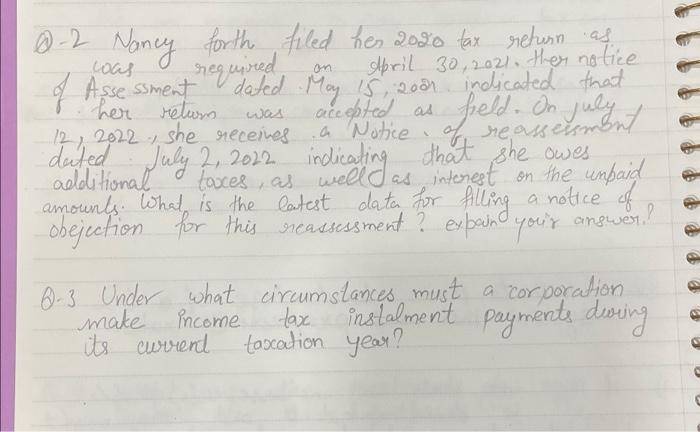 Q-2 Nancy forth filed her 2020 tax return as
was required on April 30, 2021. Her notice
of Assessment dated May 15, 2021 indicated that
her return was accepted as field. On July
12, 2022, she receives a Notice of reassessment
dated July 2, 2022 indicating that she owes
additional taxes, as well as interest on the unpaid
amounts. What is the latest data for filling a notice of
obejection for this reassessment? expain your answer?
Q-3 Under what circumstances must a corporation
make income tax instalment payments during
its current taxcation year?